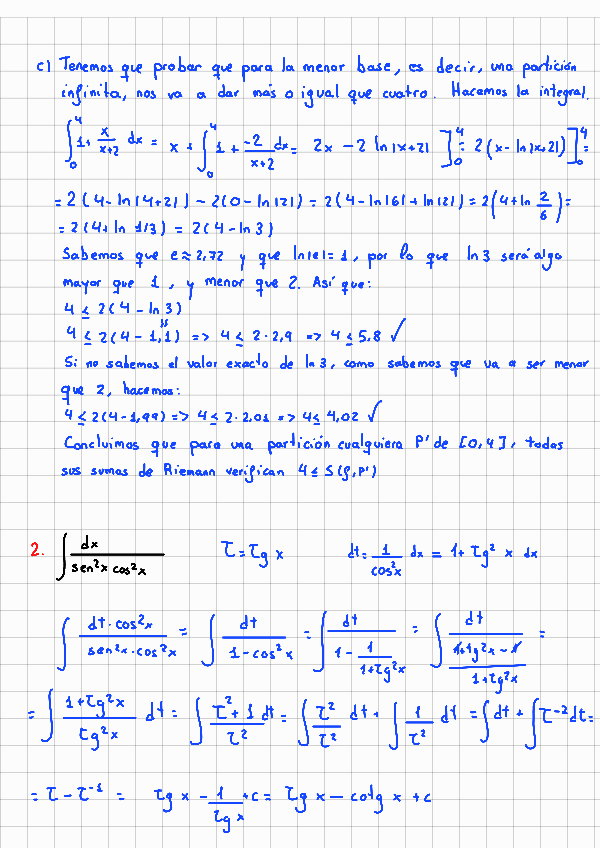 c) Tenemos que probar que para la menor base, es decir, una partición
infinita, nos va a dar más o igual que cuatro. Hacemos la integral.
∫₀⁴ 1 + x/(x+2) dx = x + ∫₀⁴ 1 + -2/(x+2) dx = 2x - 2 ln|x+2| ]₀⁴ = 2(x - ln|x+2|) ]₀⁴ =
= 2(4 - ln|4+2|) - 2(0 - ln|2|) = 2(4 - ln|6| + ln|2|) = 2(4 + ln 2/6) =
= 2(4 + ln 1/3) = 2(4 - ln 3)
Sabemos que e ≈ 2,72 y que ln|e| = 1, por lo que ln3 será algo
mayor que 1, y menor que 2. Así que:
4 ≤ 2(4 - ln 3)
4 ≤ 2(4 - 1,1) => 4 ≤ 2·2,9 => 4 ≤ 5,8 ✓
Si no sabemos el valor exacto de ln3, como sabemos que va a ser menor
que 2, hacemos:
4 ≤ 2(4-1,99) => 4 ≤ 2·2,01 => 4 ≤ 4,02 ✓
Concluimos que para una partición cualquiera P' de [0,4], todas
sus sumas de Riemann verifican 4 ≤ S(f,P')
2. ∫ dx/(sen²x cos²x) τ = τg x dt = 1/cos²x dx = 1 + τg² x dx
∫ dt·cos²x/(sen²x·cos²x) = ∫ dt/(1 - cos²x) = ∫ dt/(1 - 1/(1+τg²x)) = ∫ dt/((1+τg²x - 1)/(1+τg²x)) =
= ∫ (1+τg²x)/τg²x dt = ∫ (τ²+1)/τ² dt = ∫ τ²/τ² dt + ∫ 1/τ² dt = ∫ dt + ∫ τ⁻² dt =
= τ - τ⁻¹ = τg x - 1/τg x + c = τg x - cotg x + c